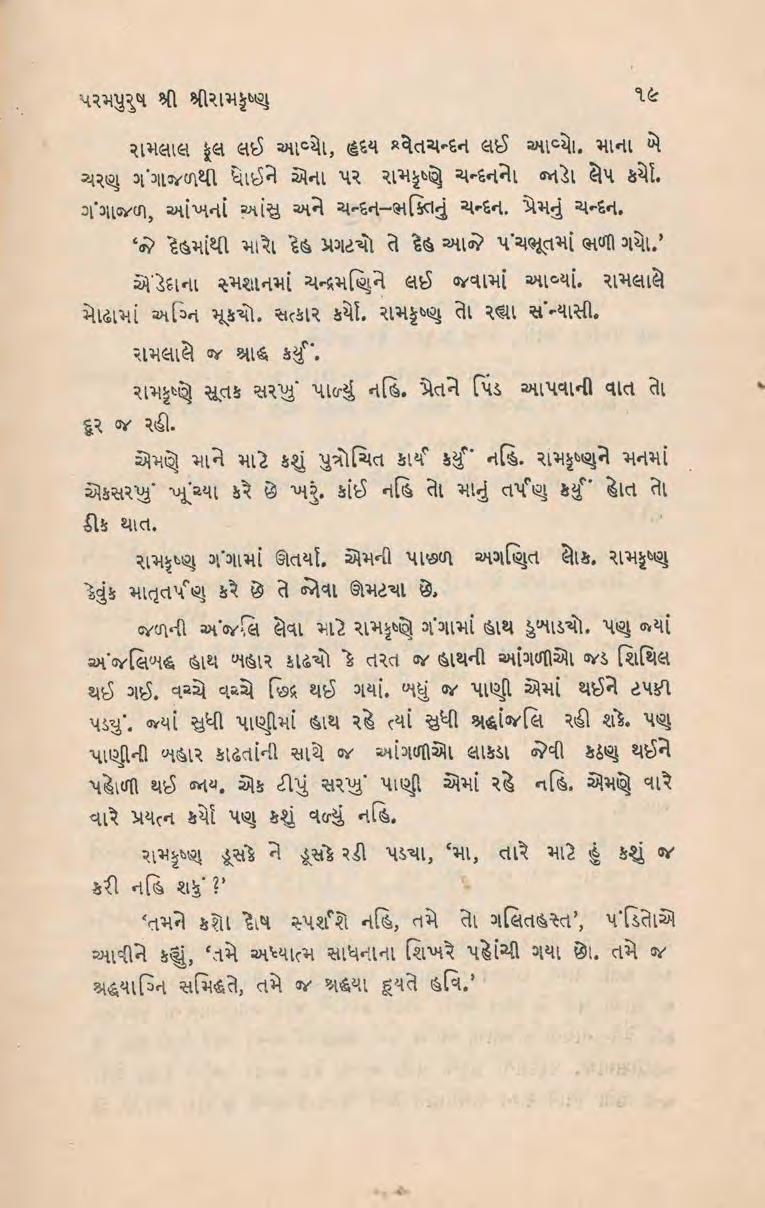 પરમપુરુષ શ્રી શ્રીરામકૃષ્ણ ૧૯
રામલાલ ફૂલ લઈ આવ્યો, હૃદય શ્વેતચન્દન લઈ આવ્યો. માના બે
ચરણ ગંગાજળથી ધોઈને એના પર રામકૃષ્ણે ચન્દનનો જાડો લેપ કર્યો.
ગંગાજળ, આંખનાં આંસુ અને ચન્દન–ભક્તિનું ચન્દન. પ્રેમનું ચન્દન.
‘જે દેહમાંથી મારો દેહ પ્રગટચો તે દેહ આજે પંચભૂતમાં ભળી ગયો.’
એંડેદાના સ્મશાનમાં ચન્દ્રમણિને લઈ જવામાં આવ્યાં. રામલાલે
મોઢામાં અગ્નિ મૂકચો. સત્કાર કર્યો. રામકૃષ્ણ તો રહ્યા સંન્યાસી.
રામલાલે જ શ્રાદ્ધ કર્યું.
રામકૃષ્ણે સૂતક સરખું પાળ્યું નહિ. પ્રેતને પિંડ આપવાની વાત તો
દૂર જ રહી.
એમણે માને માટે કશું પુત્રોચિત કાર્ય કર્યું નહિ. રામકૃષ્ણને મનમાં
એકસરખું ખૂંચ્યા કરે છે ખરું. કાંઈ નહિ તો માનું તર્પણ કર્યું હોત તો
ઠીક થાત.
રામકૃષ્ણ ગંગામાં ઊતર્યા. એમની પાછળ અગણિત લોક. રામકૃષ્ણ
કેવુંક માતૃતર્પણ કરે છે તે જોવા ઊમટચા છે.
જળની અંજલિ લેવા માટે રામકૃષ્ણે ગંગામાં હાથ ડુબાડચો. પણ જ્યાં
અંજલિબદ્ધ હાથ બહાર કાઢચો કે તરત જ હાથની આંગળીઓ જડ શિથિલ
થઈ ગઈ. વચ્ચે વચ્ચે છિદ્ર થઈ ગયાં. બધું જ પાણી એમાં થઈને ટપકી
પડયું. જ્યાં સુધી પાણીમાં હાથ રહે ત્યાં સુધી શ્રદ્ધાંજલિ રહી શકે. પણ
પાણીની બહાર કાઢતાંની સાથે જ આંગળીઓ લાકડા જેવી કઠણ થઈને
પહોળી થઈ જાય. એક ટીપું સરખું પાણી એમાં રહે નહિ. એમણે વારે
વારે પ્રયત્ન કર્યો પણ કશું વળ્યું નહિ.
રામકૃષ્ણ ડૂસકે ને ડૂસકે રડી પડચા, ‘મા, તારે માટે હું કશું જ
કરી નહિ શકું ?’
‘તમને કશો દોષ સ્પર્શશે નહિ, તમે તો ગલિતહસ્ત’, પંડિતોએ
આવીને કહ્યું, ‘તમે અધ્યાત્મ સાધનાના શિખરે પહોંચી ગયા છો. તમે જ
શ્રદ્ધયાગ્નિ સમિદ્ધતે, તમે જ શ્રદ્ધયા હૂયતે હવિ.’